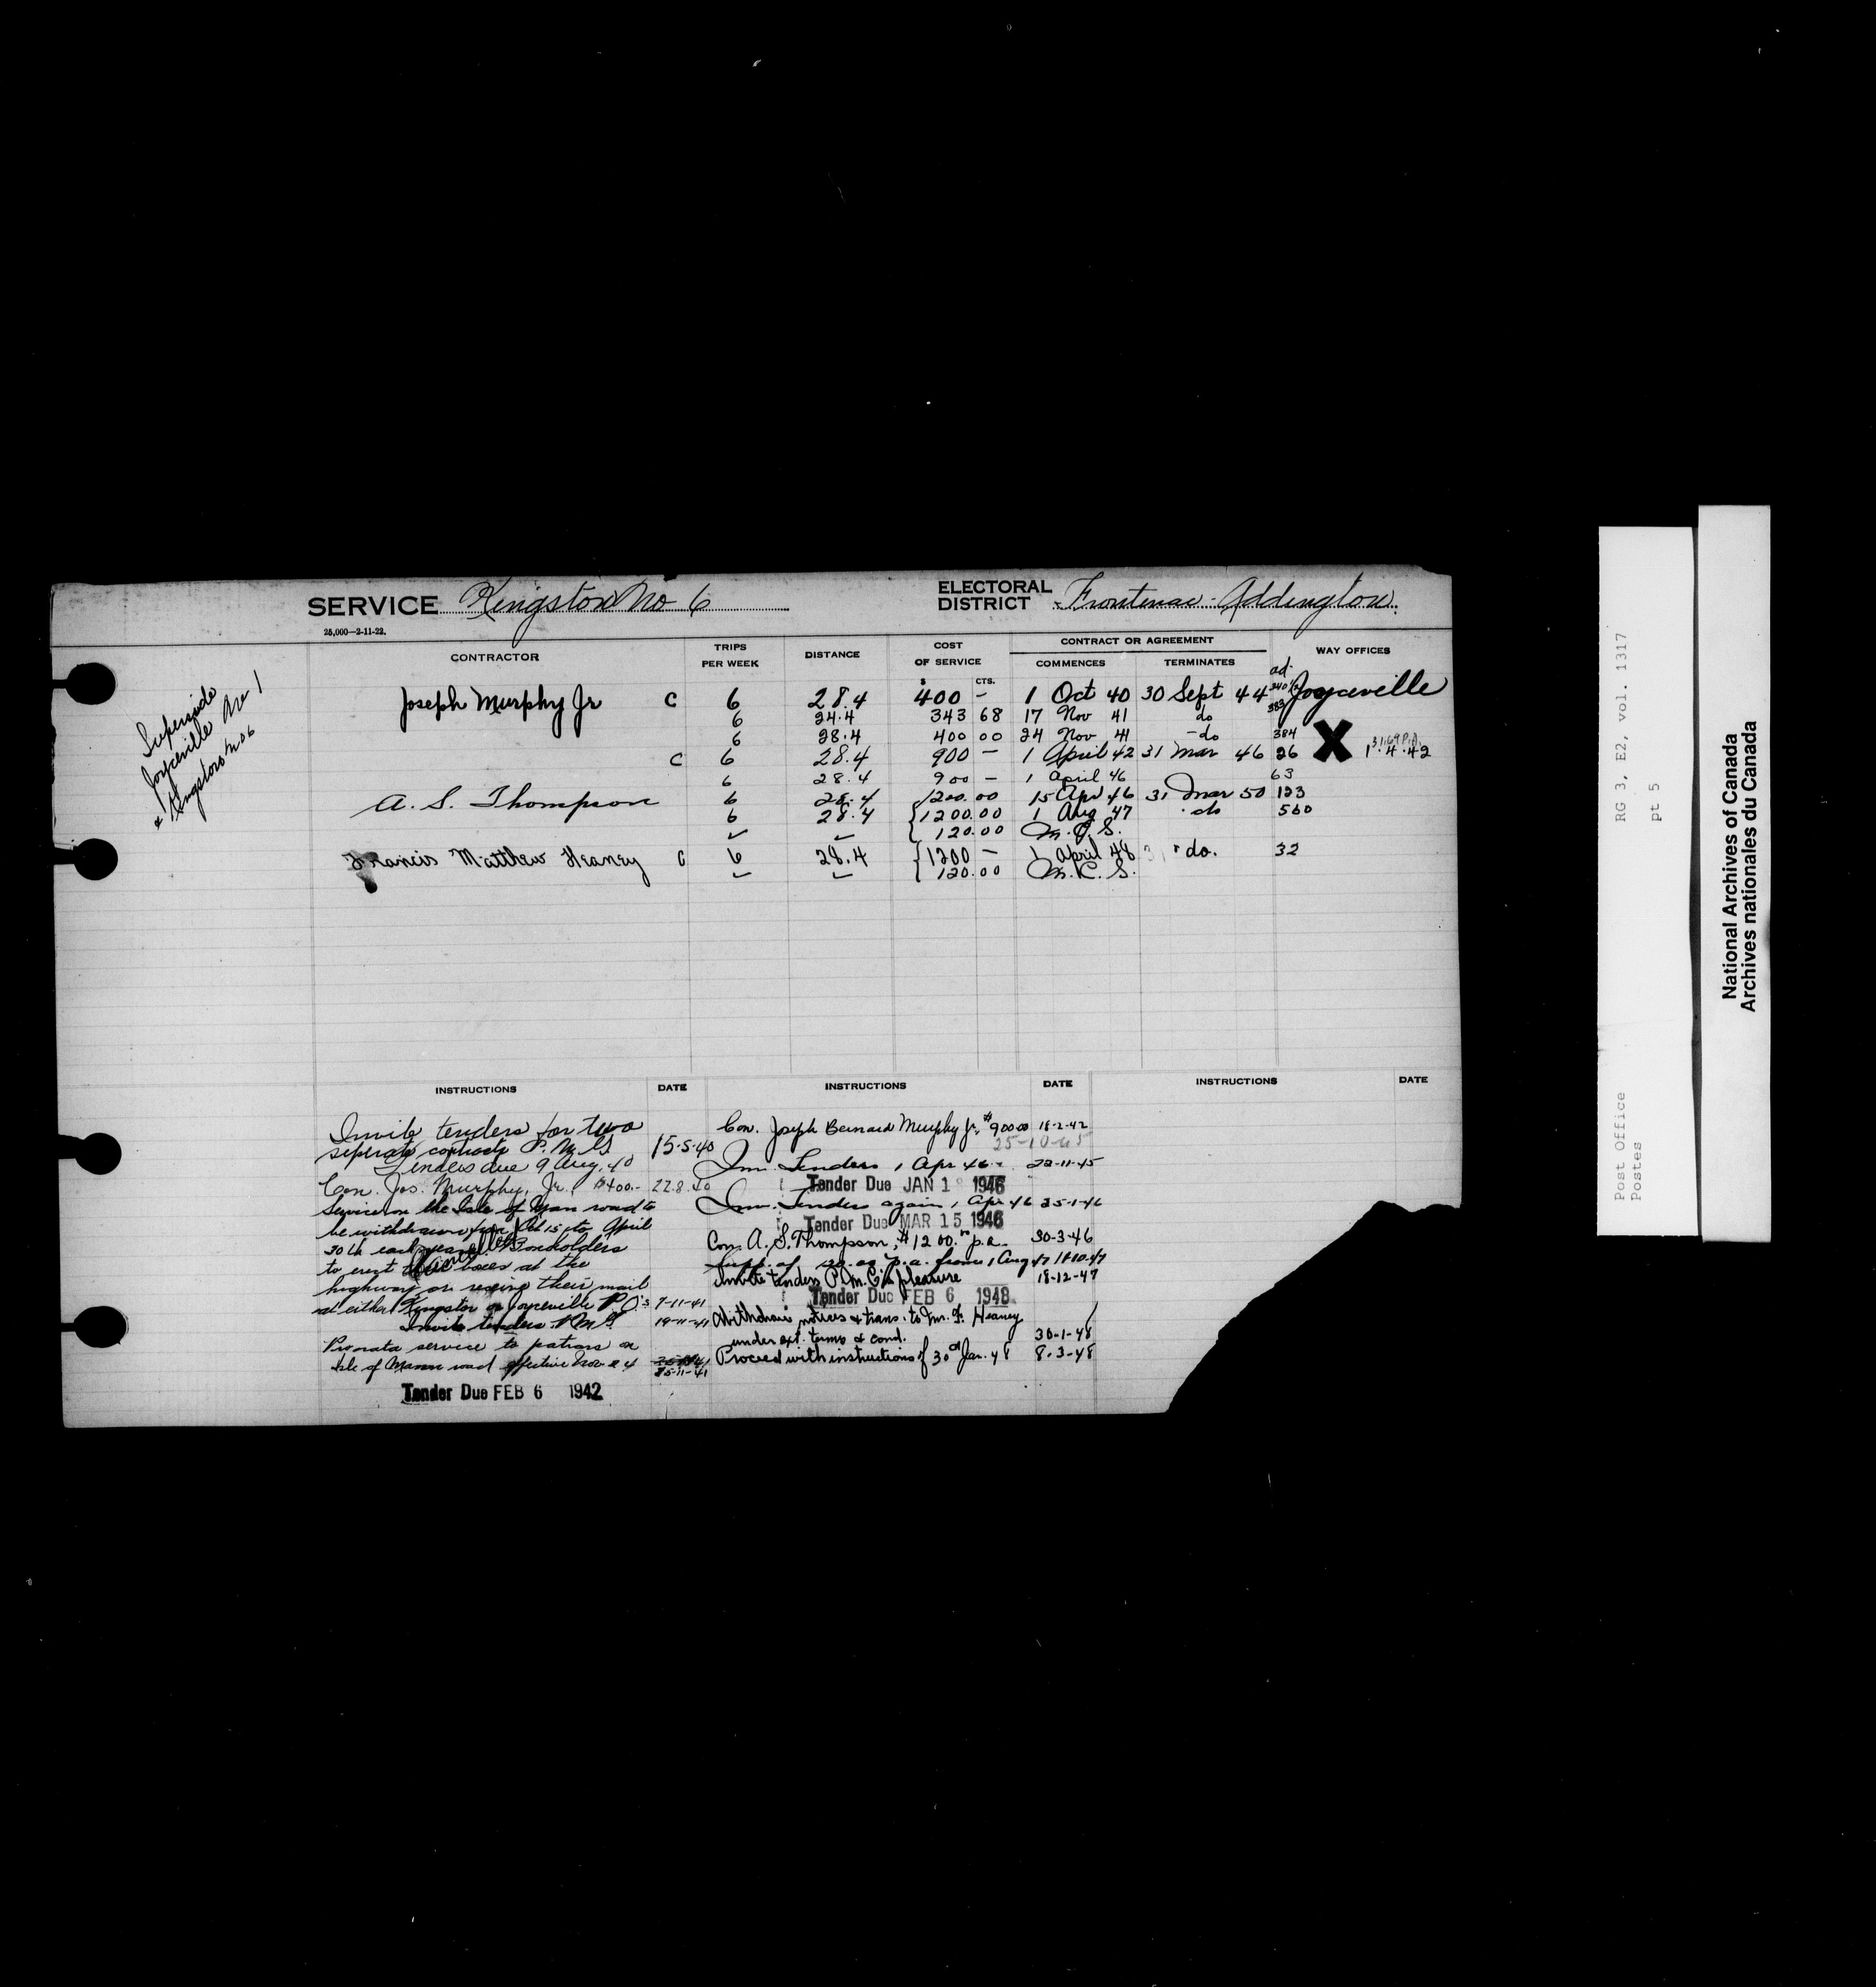 SERVICE Kingston No 6
ELECTORAL DISTRICT Frontenac-Addington
25,000—2-11-22.
CONTRACTOR TRIPS PER WEEK DISTANCE COST OF SERVICE CONTRACT OR AGREEMENT WAY OFFICES
COMMENCES TERMINATES
$ CTS.
Supersede
Joyceville RR 1
& Kingston No 6
Joseph Murphy Jr C 6 28.4 400 — 1 Oct 40 30 Sept 44 ad. 340½ Joyceville
383
6 24.4 343 68 17 Nov 41 do
6 28.4 400 00 24 Nov 41 - do 384 X
C 6 28.4 900 — 1 April 42 31 Mar 46 26 1.4.42
6 28.4 900 — 1 April 46 63
A. S. Thompson 6 28.4 1200.00 15 Apr 46 31 Mar 50 133
6 28.4 { 1200.00 1 Aug 47 do 560
✓ ✓ { 120.00 M.C.S.
Francis Matthew Heaney C 6 28.4 { 1200 — 1 April 48 " do. 32
{ 120.00 M.C.S.
INSTRUCTIONS DATE INSTRUCTIONS DATE INSTRUCTIONS DATE
Invite tenders for two
seperate contracts P.M.G 15-5-40
Tenders due 9 Aug. 40
Con. Jos. Murphy, Jr. $400.- 22.8.40
Service on the Isle of Man road to
be withdrawn from Oct 15 to April
30th each year. Boxholders
to erect their boxes at the
highway or receive their mail
at either Kingston or Joyceville P.O's 7-11-41
Cancelled
Invite tenders P.M.G. 19-11-41
Pro rata service to patrons on
Isle of Mann road effective Nov. 24
25-11-41
Tender Due FEB 6 1942
Con. Joseph Bernard Murphy Jr. $900.00 18-2-42
25-10-45
Inv. Tenders 1 Apr 46 22-11-45
Tender Due JAN 1 1946
Inv. Tenders again 1 Apr 46 25-1-46
Tender Due MAR 15 1946
Con. A. S. Thompson, $1200.00 p.a. 30-3-46
Supp. of 120.00 p.a. from 1 Aug 47 11-10-47
Invite tenders P.M.G's pleasure 18-12-47
Tender Due FEB 6 1948
Withdraw notices & trans. to Mr. F. Heaney
under ext. terms & cond. 30-1-48
Proceed with instructions of 30th Jan. 48 8-3-48
RG 3, E2, vol. 1317
pt 5
Post Office
Postes
National Archives of Canada
Archives nationales du Canada